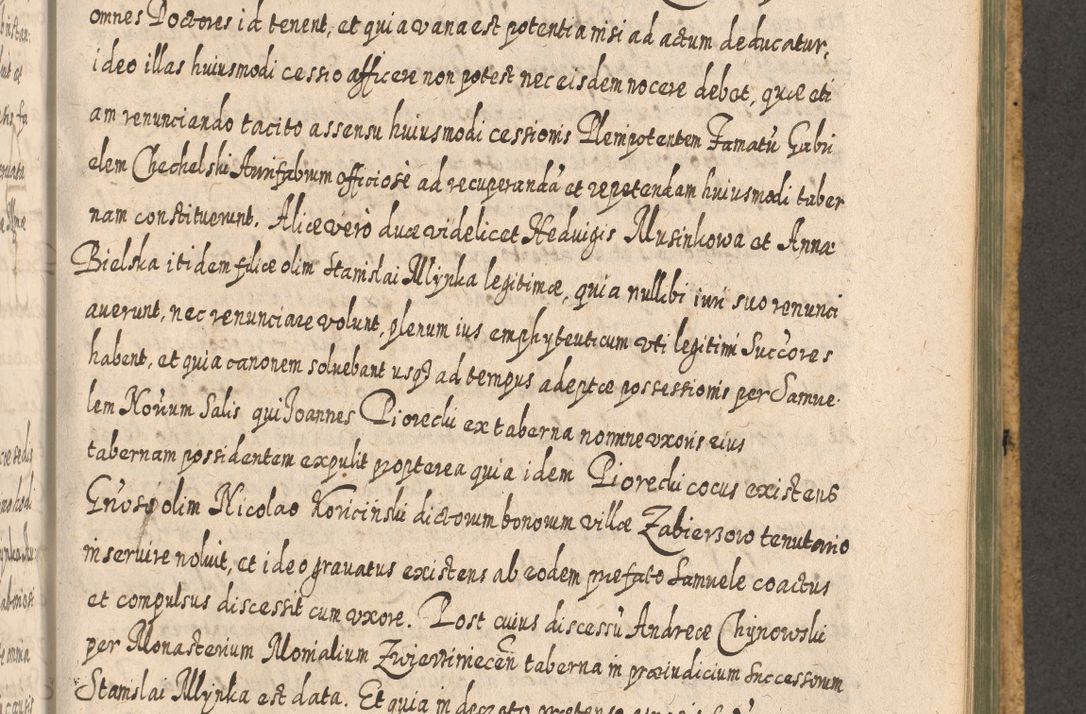 omnes Doctores id tenent, et quia vana est potentia nisi ad actum deducatur,
ideo illas huiusmodi cessio afficere non potest nec eisdem nocere debet, quæ eti
am renunciando tacito assensu huiusmodi cessionis Plenipotentem Famatū Gabri
elem Chechelski Aurifabrum officiose ad recuperandā et repetendam huiusmodi taber
nam constituerunt. Aliæ vero duæ videlicet Heduigis Mlusinkowa et Anna
Bielska itidem filiæ olim Stanislai Mlynka legitimæ, quia nullibi iuri suo renunci
auerunt, nec renunciare volunt, plenum ius emphyteuticum vti legitimi Succ̄ores
habent, et quia canonem soluebant usq3 ad tempus adeptæ possessionis per Samue
lem Norium Salis qui Joannes Piorecki ex taberna nomine vxoris eius
tabernam possidentem expulit propterea quia idem Piorecki cocus existens
Gn̄oso olim Nicolao Koricinski dictorum bonorum villæ Zabierzow tenutario
inseruire noluit, et ideo grauatus existens ab eodem præfato Samuele coactus
et compulsus discessit cum vxore. Post cuius discessū Andreæ Chynowski
per Monasterium Monialium Zwierziniecen̄ taberna in præiudicium Successorum
Stanislai Mlynka est data. Et quia in decreto